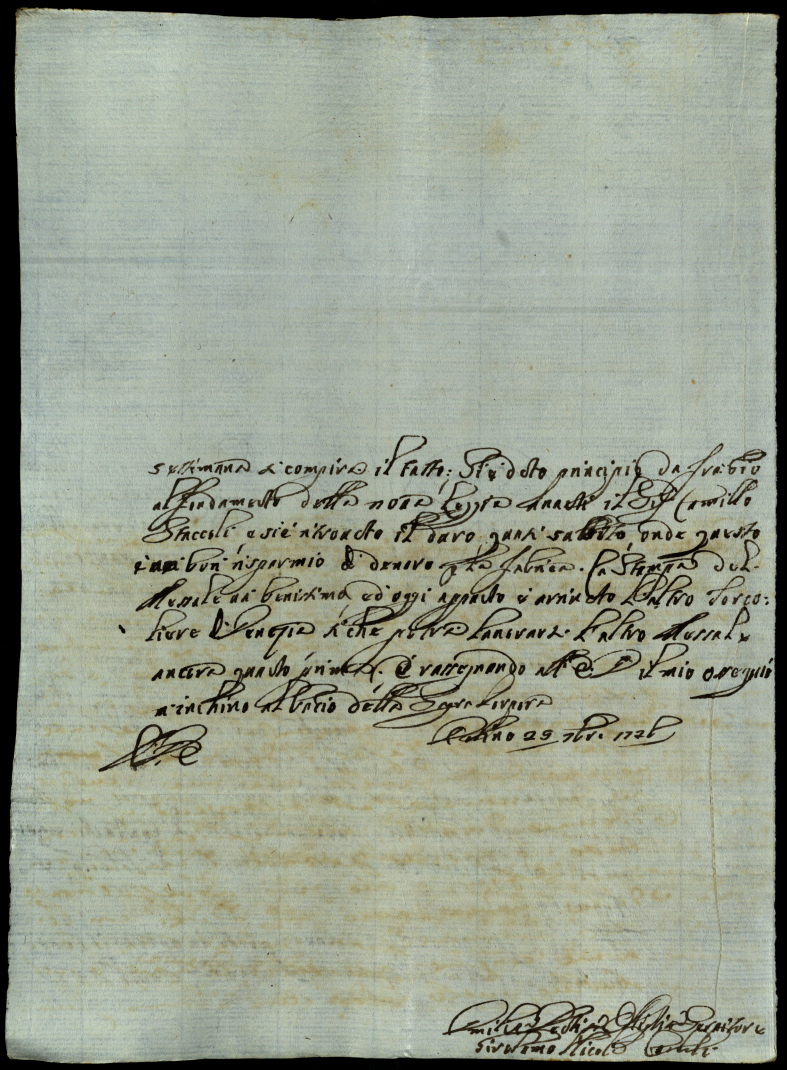 settimana di compire il tutto; Si è dato principio da Frabio
al fondamento della nova Loggia avanti il Sig.r Camillo
Staccoli e si è ritrovato il duro quasi subbito, onde questo
è un bon risparmio di denaro p la fabrica. La Stampa del
Messale va benissimo, ed oggi apponto è arrivato l'altro Torco:
liere di Venezia si che potrà lavorarsi l'altro Messale
ancora quanto prima. E rassegnando all' il mio ossequio
m'inchino al bacio della Sagra Porpora
Urbino 29 7bre. 1726
Umiliss.o Servitore
Girolamo Nicolò